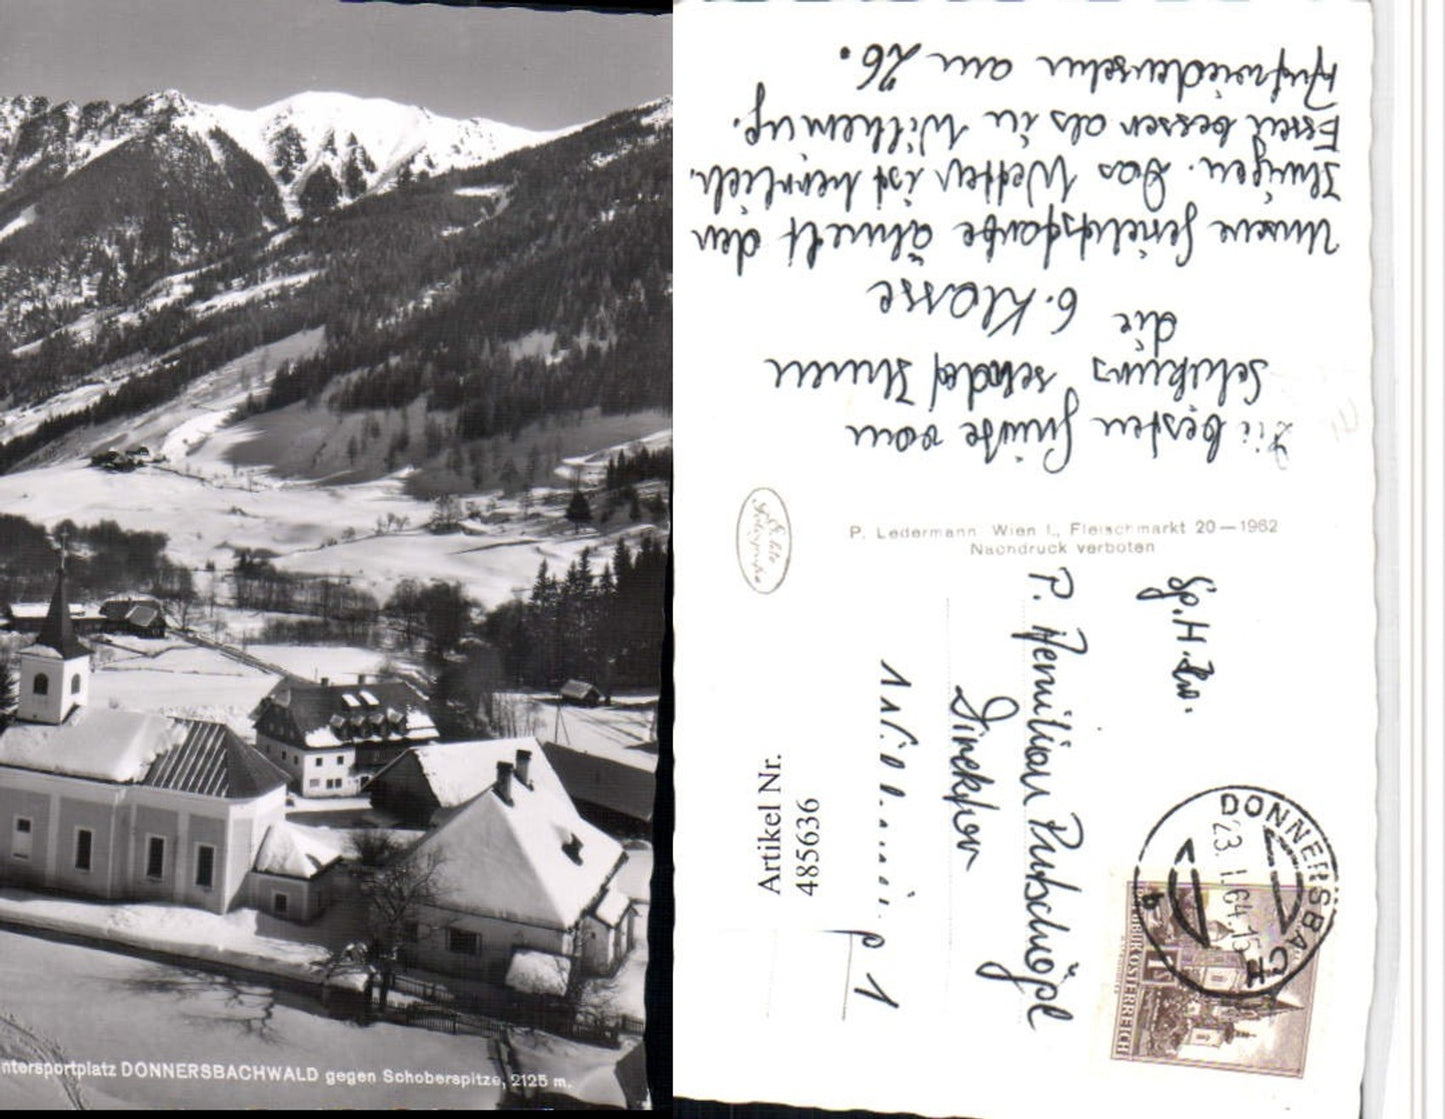 ntersportplatz DONNERSBACHWALD gegen Schoberspitze, 2125 m.
Die besten Grüße vom
Schikurs sendet Ihnen
die
6. Klasse
Unsere Gesichtsfarbe ähnelt der
Ihrigen. Das Wetter ist herrlich,
Essen besser als in Wilhering.
Aufwiedersehn am 26.
Echte
Fotografie
P. Ledermann Wien I., Fleischmarkt 20—1962
Nachdruck verboten
Sp. H. Hw.
P.
Direktor
p 1
Artikel Nr.
485636
DONNERSBACH
23. I. 64-15
b
REPUBLIK ÖSTERREICH